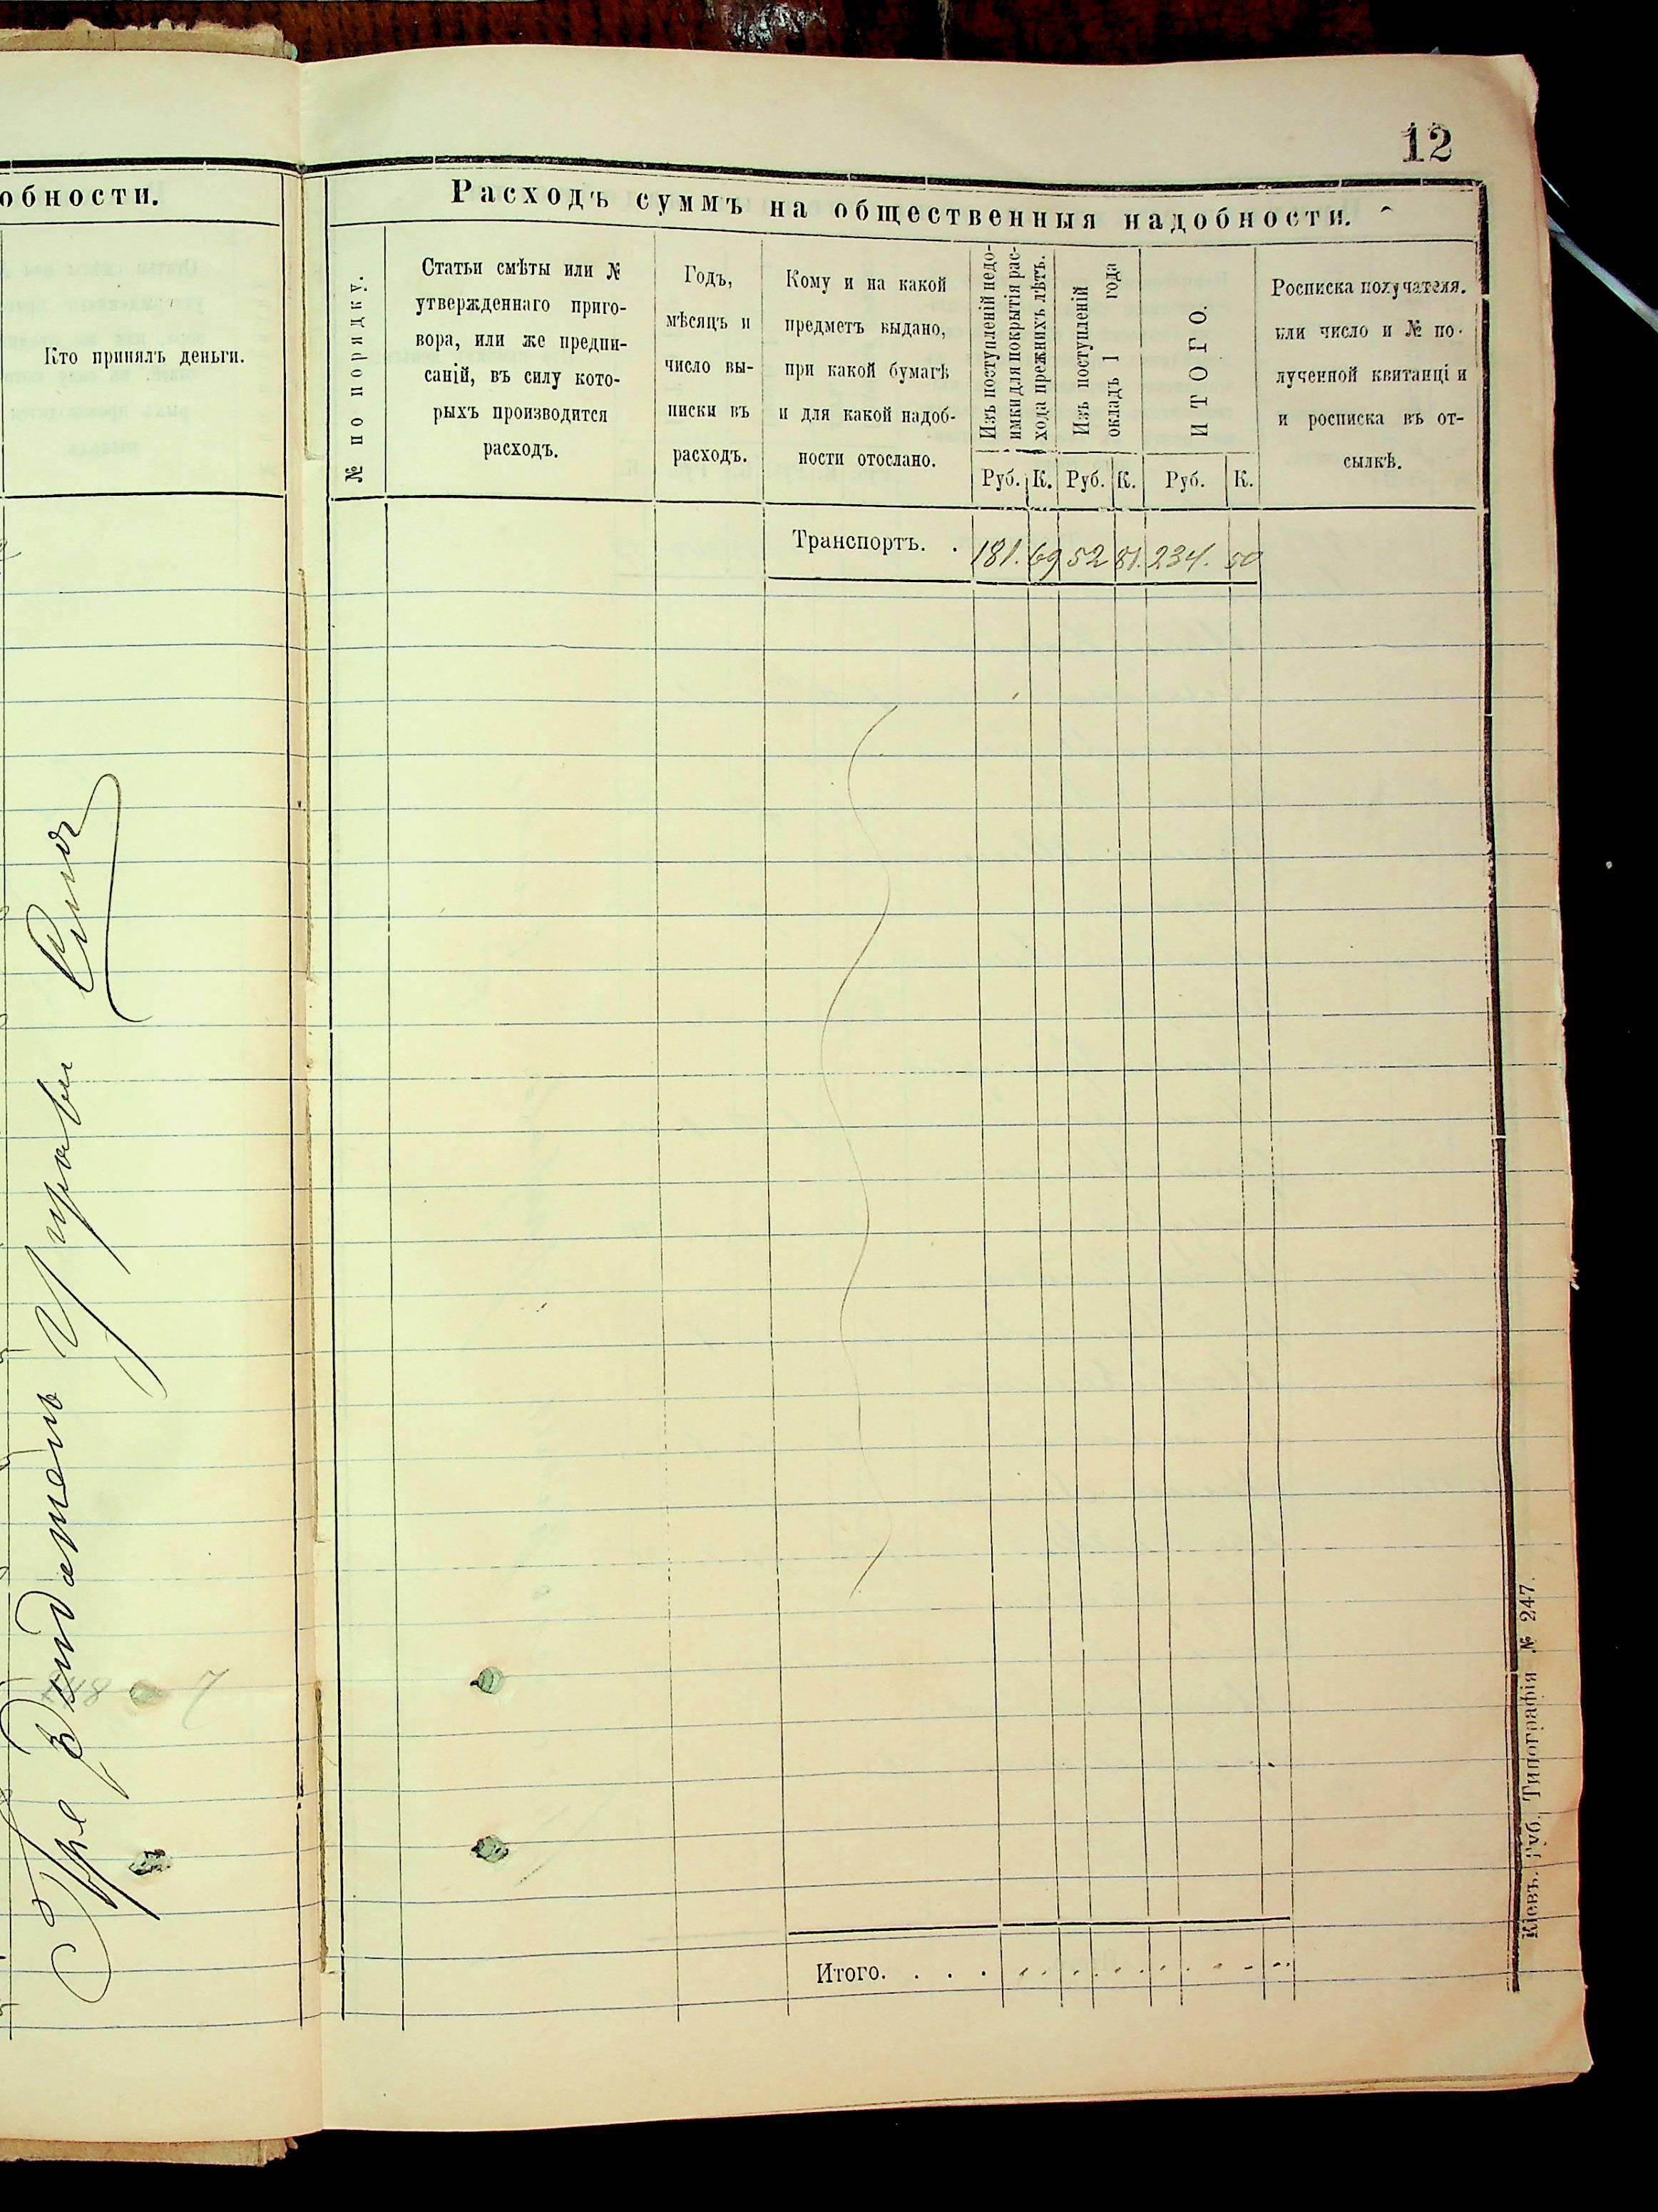 12
обности.
Кто принялъ деньги.
Предсѣдатель Управы
Расходъ суммъ на общественныя надобности.
№ по порядку.
Статьи смѣты или №
утвержденнаго приго-
вора, или же предпи-
саній, въ силу кото-
рыхъ производится
расходъ.
Годъ,
мѣсяцъ и
число вы-
писки въ
расходъ.
Кому и на какой
предметъ выдано,
при какой бумагѣ
и для какой надоб-
ности отослано.
Изъ поступленій недо-
имки для покрытія рас-
хода прежнихъ лѣтъ.
Изъ поступленій
окладъ 1 года
ИТОГО.
Росписка получателя.
или число и № по-
лученной квитанці и
и росписка въ от-
сылкѣ.
Руб. К. Руб. К. Руб. К.
Транспортъ. . 181. 69 52 81. 234. 50
Итого. . . .
Кіевъ. Губ. Типографія № 247.